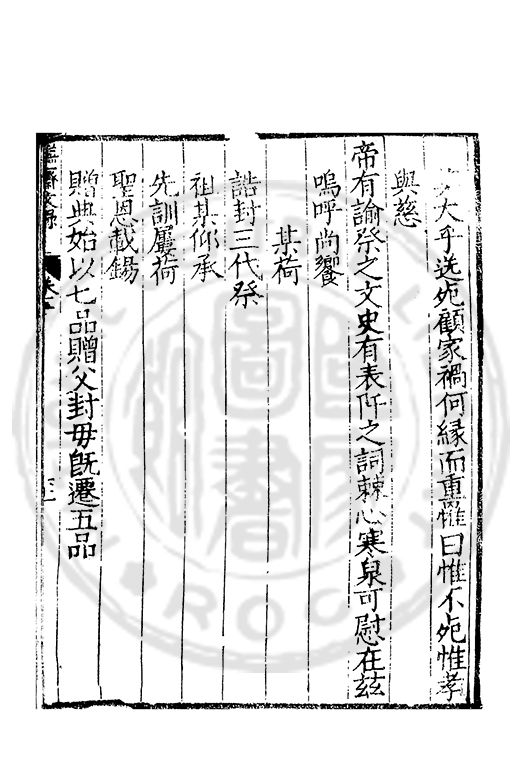 大乎送死顧家禍何緣而重罹曰惟不死惟孝
與慈
帝有諭祭之文史有表阡之詞棘心寒泉可慰在茲
嗚呼尚饗
某荷
誥封三代祭
祖某仰承
先訓屢荷
聖恩載錫
贈典始以七品贈父封毋旣遷五品